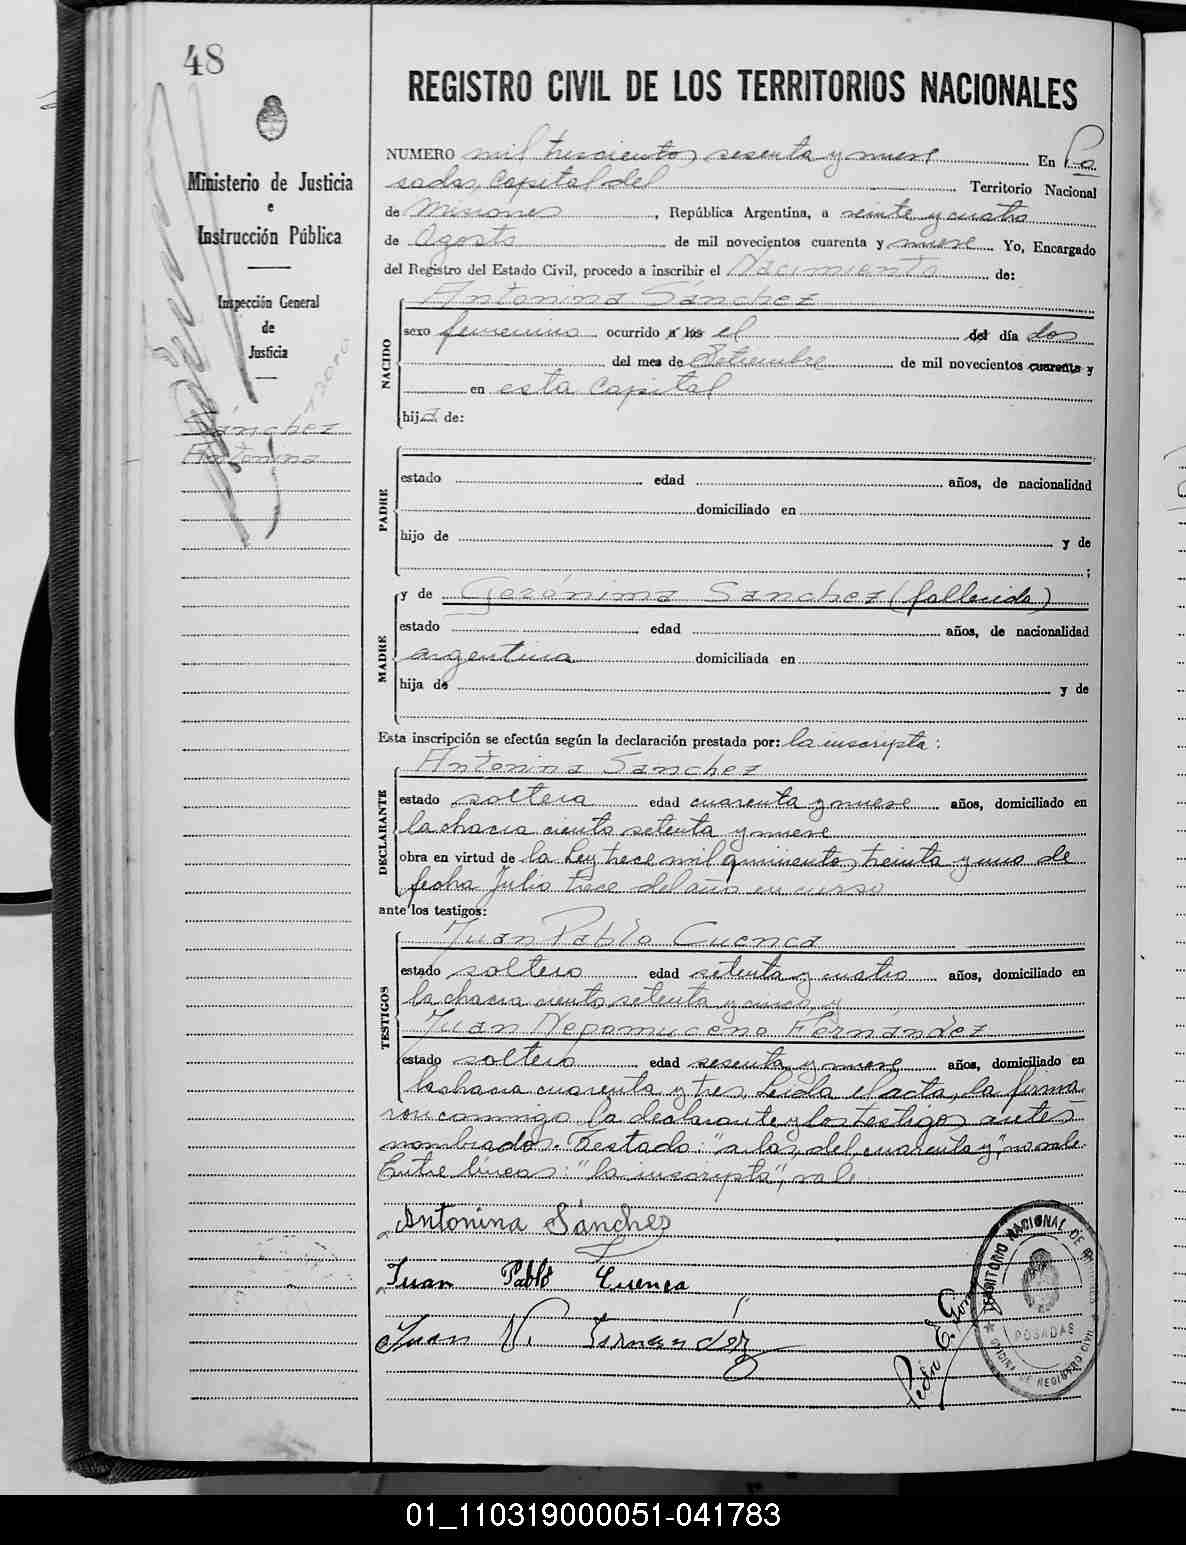 48
Ministerio de Justicia
e
Instrucción Pública
Inspección General
de
Justicia
Sánchez
Antonina
REGISTRO CIVIL DE LOS TERRITORIOS NACIONALES
NUMERO mil trescientos sesenta y nueve En Po
sadas, Capital del Territorio Nacional
de Misiones, República Argentina, a veinte y cuatro
de Agosto de mil novecientos cuarenta y nueve Yo, Encargado
del Registro del Estado Civil, procedo a inscribir el Nacimiento de:
NACIDO
Antonina Sánchez
sexo femenino ocurrido a las el del día dos
del mes de Setiembre de mil novecientos cuarenta y
en esta Capital
hija de:
PADRE
estado edad años, de nacionalidad
domiciliado en
hijo de y de
;
MADRE
y de Gerónima Sánchez (fallecida)
estado edad años, de nacionalidad
argentina domiciliada en
hija de y de
Esta inscripción se efectúa según la declaración prestada por: la inscripta:
DECLARANTE
Antonina Sanchez
estado soltera edad cuarenta y nueve años, domiciliado en
la chacra ciento setenta y nueve
obra en virtud de la Ley trece mil quinientos treinta y uno de
fecha Julio trece del año en curso
ante los testigos:
TESTIGOS
Juan Pablo Cuenca
estado soltero edad setenta y cuatro años, domiciliado en
la chacra ciento setenta y cinco y
Juan Nepomuceno Fernández
estado soltero edad sesenta y nueve años, domiciliado en
la chacra cuarenta y tres. Leida el acta, la firma
ron conmigo la declarante y los testigos antes
nombrados. Testado: "a las, del, cuarenta y", no vale.
Entre líneas: "la inscripta", vale.
Antonina Sánchez
Juan Pablo Cuenca
Juan N. Fernandéz
Pedro E.
TERRITORIO NACIONAL DE MISIONES
POSADAS
OFICINA DE REGISTRO CIVIL
01_110319000051-041783